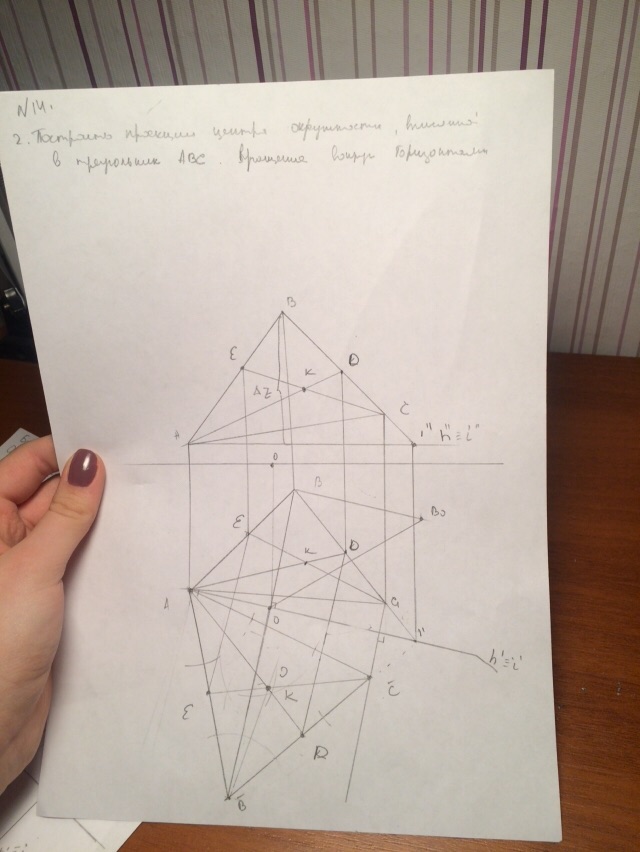 N14.
2. Построить проекции центра окружности, вписанной
в треугольник ABC. Вращение вокруг горизонтали
B
E
D
K
ΔZ
C
A
1" h" ≡ i"
O
B
B0
E
D
K
A
O
C
1'
h' ≡ i'
O
C
E
K
D
B